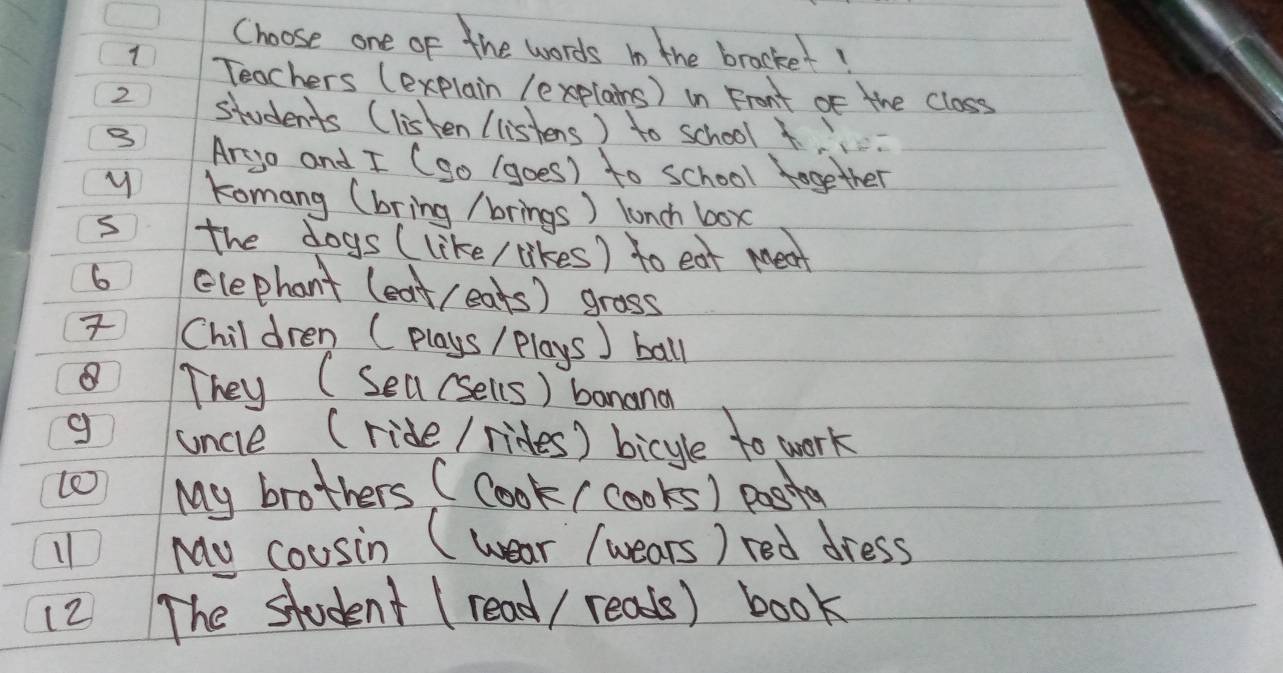 Choose one of the words in the bracket !
1 Teachers (explain / explains) in Front of the class
2 Students (listen / listens) to school
3 Aryo and I (go / goes) to school together
4 Komang (bring / brings) lunch box
5 the dogs (like / likes) to eat meat
6 Elephant (eat / eats) grass
7 Children (plays / plays) ball
8 They (Sell / Sells) banana
9 uncle (ride / rides) bicyle to work
10 My brothers (Cook / Cooks) pasta
11 My cousin (wear / wears) red dress
12 The student (read / reads) book